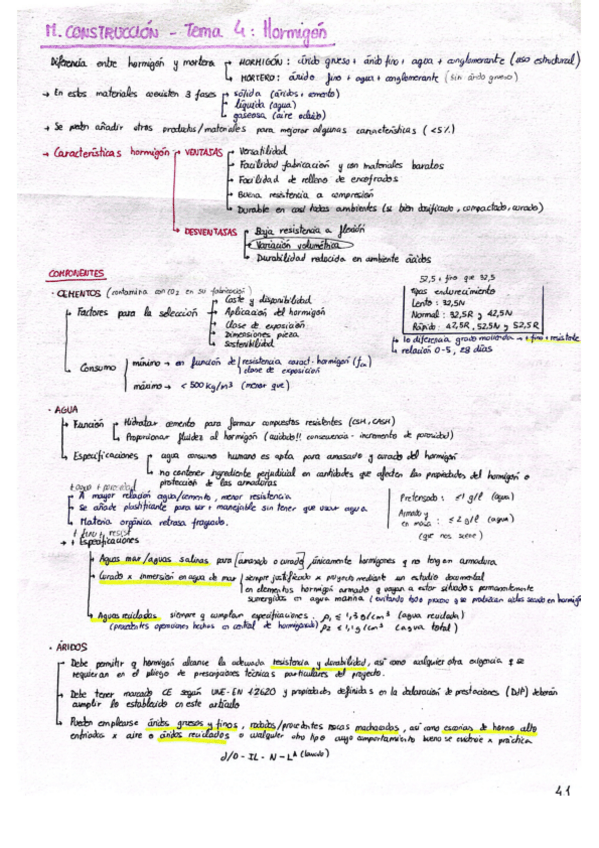 M. CONSTRUCCIÓN - Tema 4: Hormigón
Diferencia entre hormigón y mortero → HORMIGÓN: árido grueso + árido fino + agua + conglomerante (uso estructural)
→ MORTERO: árido fino + agua + conglomerante (sin árido grueso)
→ En estos materiales coexisten 3 fases → sólida (áridos + cemento)
→ líquida (agua)
→ gaseosa (aire ocluido)
→ Se pueden añadir otros productos/materiales para mejorar algunas características (<5%)
→ Características hormigón → VENTAJAS → Versatilidad
→ Facilidad fabricación y con materiales baratos
→ Facilidad de relleno de encofrados
→ Buena resistencia a compresión
→ Durable en casi todos ambientes (si bien dosificado, compactado, curado)
→ DESVENTAJAS → Baja resistencia a flexión
→ Variación volumétrica
→ Durabilidad reducida en ambiente ácidos
COMPONENTES
· CEMENTOS (contamina con CO2 en su fabricación)
→ Factores para la selección → Coste y disponibilidad
→ Aplicación del hormigón
→ Clase de exposición
→ Dimensiones pieza
→ Sostenibilidad
52,5 + fino que 32,5
Tipos endurecimiento
Lento: 32,5N
Normal: 32,5R y 42,5N
Rápido: 42,5R, 52,5N y 52,5R
→ lo diferencia grado molienda → + fino + resistente
relación 0-5, 28 días
→ Consumo mínimo → en función de resistencia caract. hormigón (fck)
clase de exposición
máximo → < 500 Kg/m³ (menor que)
· AGUA
→ Función → Hidratar cemento para formar compuestos resistentes (CSH, CASH)
→ Proporcionar fluidez al hormigón (cuidado!! consecuencia - incremento de porosidad)
→ Especificaciones → agua consumo humano es apta para amasado y curado del hormigón
→ no contener ingrediente perjudicial en cantidades que afecten las propiedades del hormigón o
protección de las armaduras
↑ agua + porosidad
→ A mayor relación agua/cemento, menor resistencia
→ Se añade plastificante para ser + manejable sin tener que usar agua
→ Materia orgánica retrasa fraguado.
Pretensado: ≤1 g/l (agua)
Armado y
en masa: ≤2 g/l (agua)
(que nos suene)
→ + Especificaciones
→ Aguas mar/aguas salinas para [amasado o curado] únicamente hormigones q no tengan armadura
→ Curado x inmersión en agua de mar siempre justificado x proyecto mediante un estudio documental
en elementos hormigón armado q vayan a estar situados permanentemente
sumergidos en agua marina
→ Aguas recicladas siempre q cumplan especificaciones, ρ1 ≤ 1,3 g/cm³ (agua reciclada)
(procedentes operaciones hechas en central de hormigonado) ρ2 ≤ 1,1 g/cm³ (agua total)
· ÁRIDOS
→ Debe permitir q hormigón alcance la adecuada resistencia y durabilidad, así como cualquier otra exigencia q se
requieran en el pliego de prescripciones técnicas particulares del proyecto.
→ Debe tener marcado CE según UNE-EN 12620 y propiedades definidas en la declaración de prestaciones (DdP) deberán
cumplir lo establecido en este artículo
→ Pueden emplearse áridos gruesos y finos, rodados/procedentes rocas machacadas, así como escorias de horno alto
enfriadas x aire o áridos reciclados o cualquier otro tipo cuyo comportamiento bueno se x práctica
d/D - IL - N - LA (lavado)
4.1